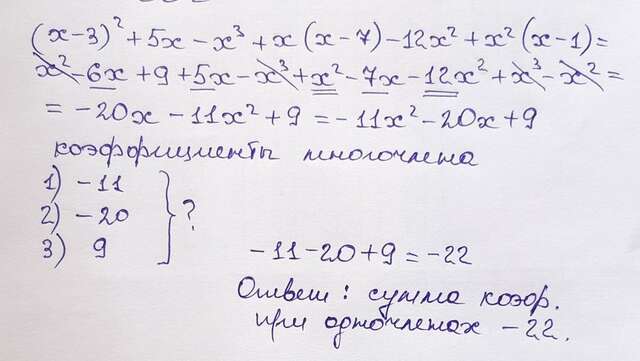 (x-3)² + 5x - x³ + x(x-7) - 12x² + x²(x-1) =
x² - 6x + 9 + 5x - x³ + x² - 7x - 12x² + x³ - x² =
= -20x - 11x² + 9 = -11x² - 20x + 9
коэффициенты многочлена
1) -11
2) -20 } ?
3) 9
-11-20+9 = -22
Ответ: сумма коэф.
при одночленах -22.